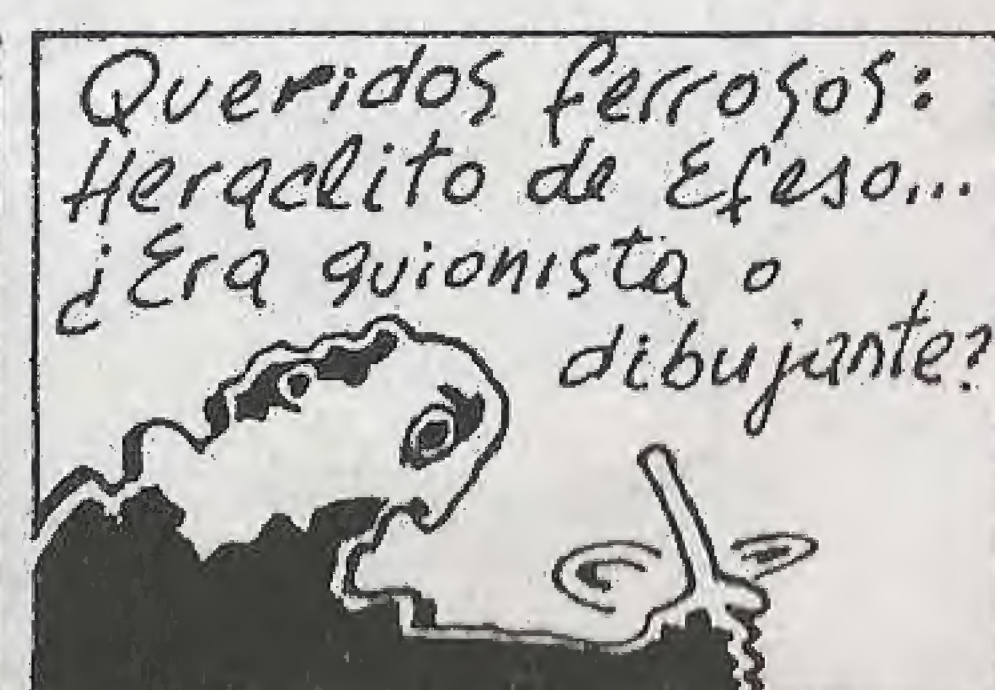 Queridos ferrosos:
Heraclito de Efeso...
¿Era guionista o
dibujante?